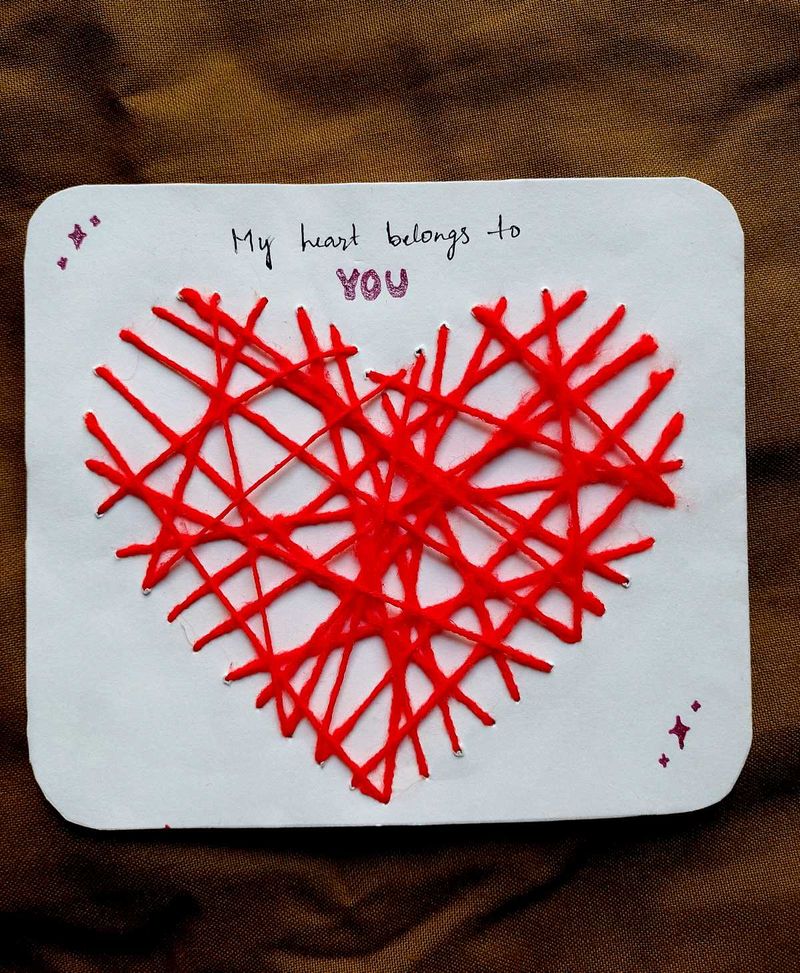 My heart belongs to
YOU